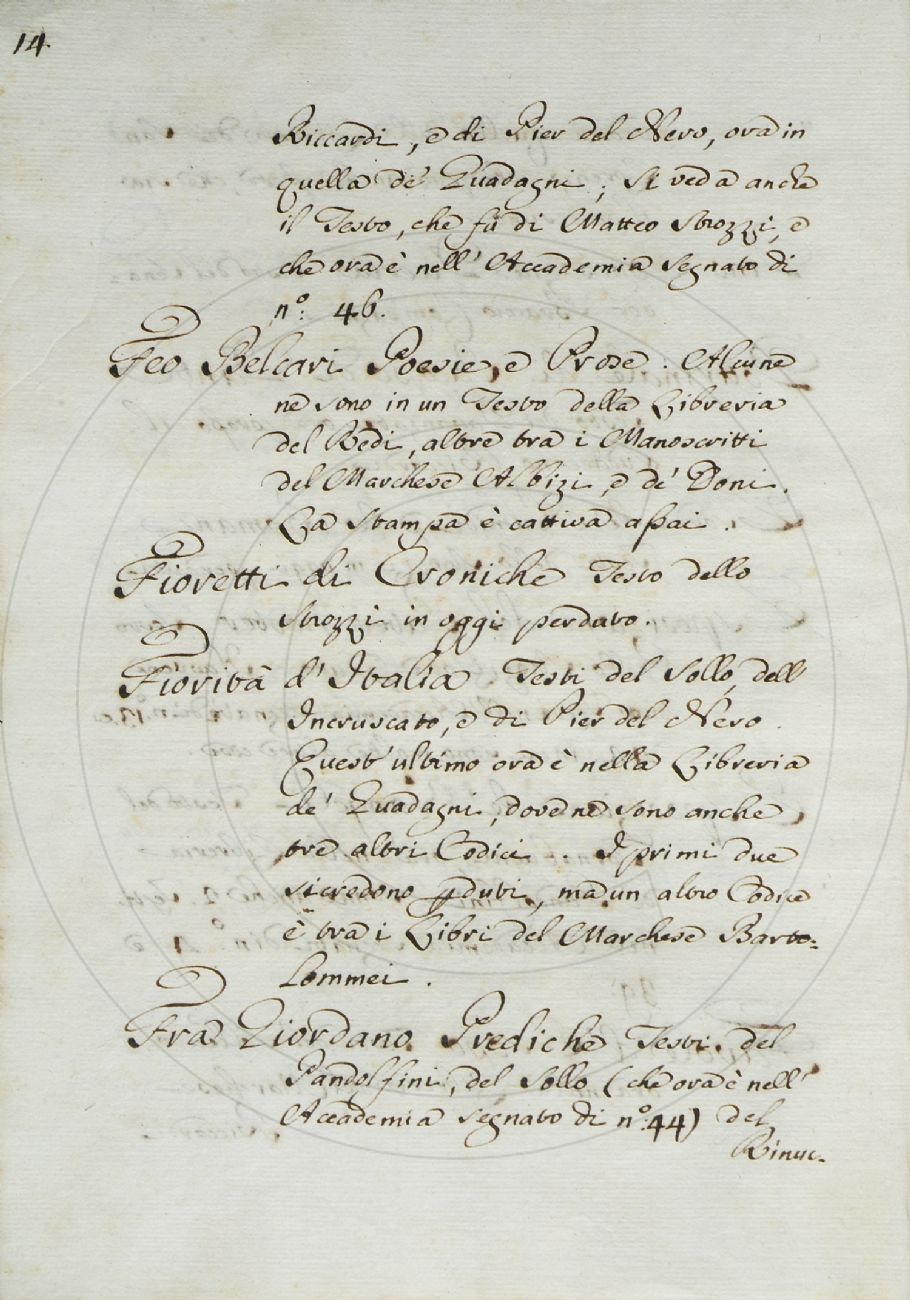 14
Riccardi, e di Pier del Nero, ora in
quella de' Guadagni; si veda anche
il Testo, che fù di Matteo Strozzi, e
che ora è nell' Accademia segnato di
n.º: 46.
Feo Belcari Poesie, e Prose. Alcune
ne sono in un Testo della Libreria
del Redi, altre tra i Manoscritti
del Marchese Albizi, e de' Doni.
La stampa è cattiva assai.
Fioretti di Croniche Testo dello
Strozzi in oggi perduto.
Fiorità d'Italia. Testi del Sollo, dell'
Incruscato, e di Pier del Nero.
Quest' ultimo ora è nella Libreria
de' Guadagni, dove ne sono anche
tre altri Codici. I primi due
si credono pduti, ma un altro Codice
è tra i Libri del Marchese Barto=
lommei.
Fra Giordano Prediche Testi del
Pandolfini, del Sollo (che ora è nell'
Accademia segnato di nº: 44) del
Rinuc-